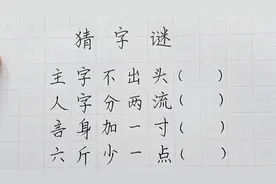 猜字谜
主字不出头( )
人字分两流( )
言身加一寸( )
六斤少一点( )